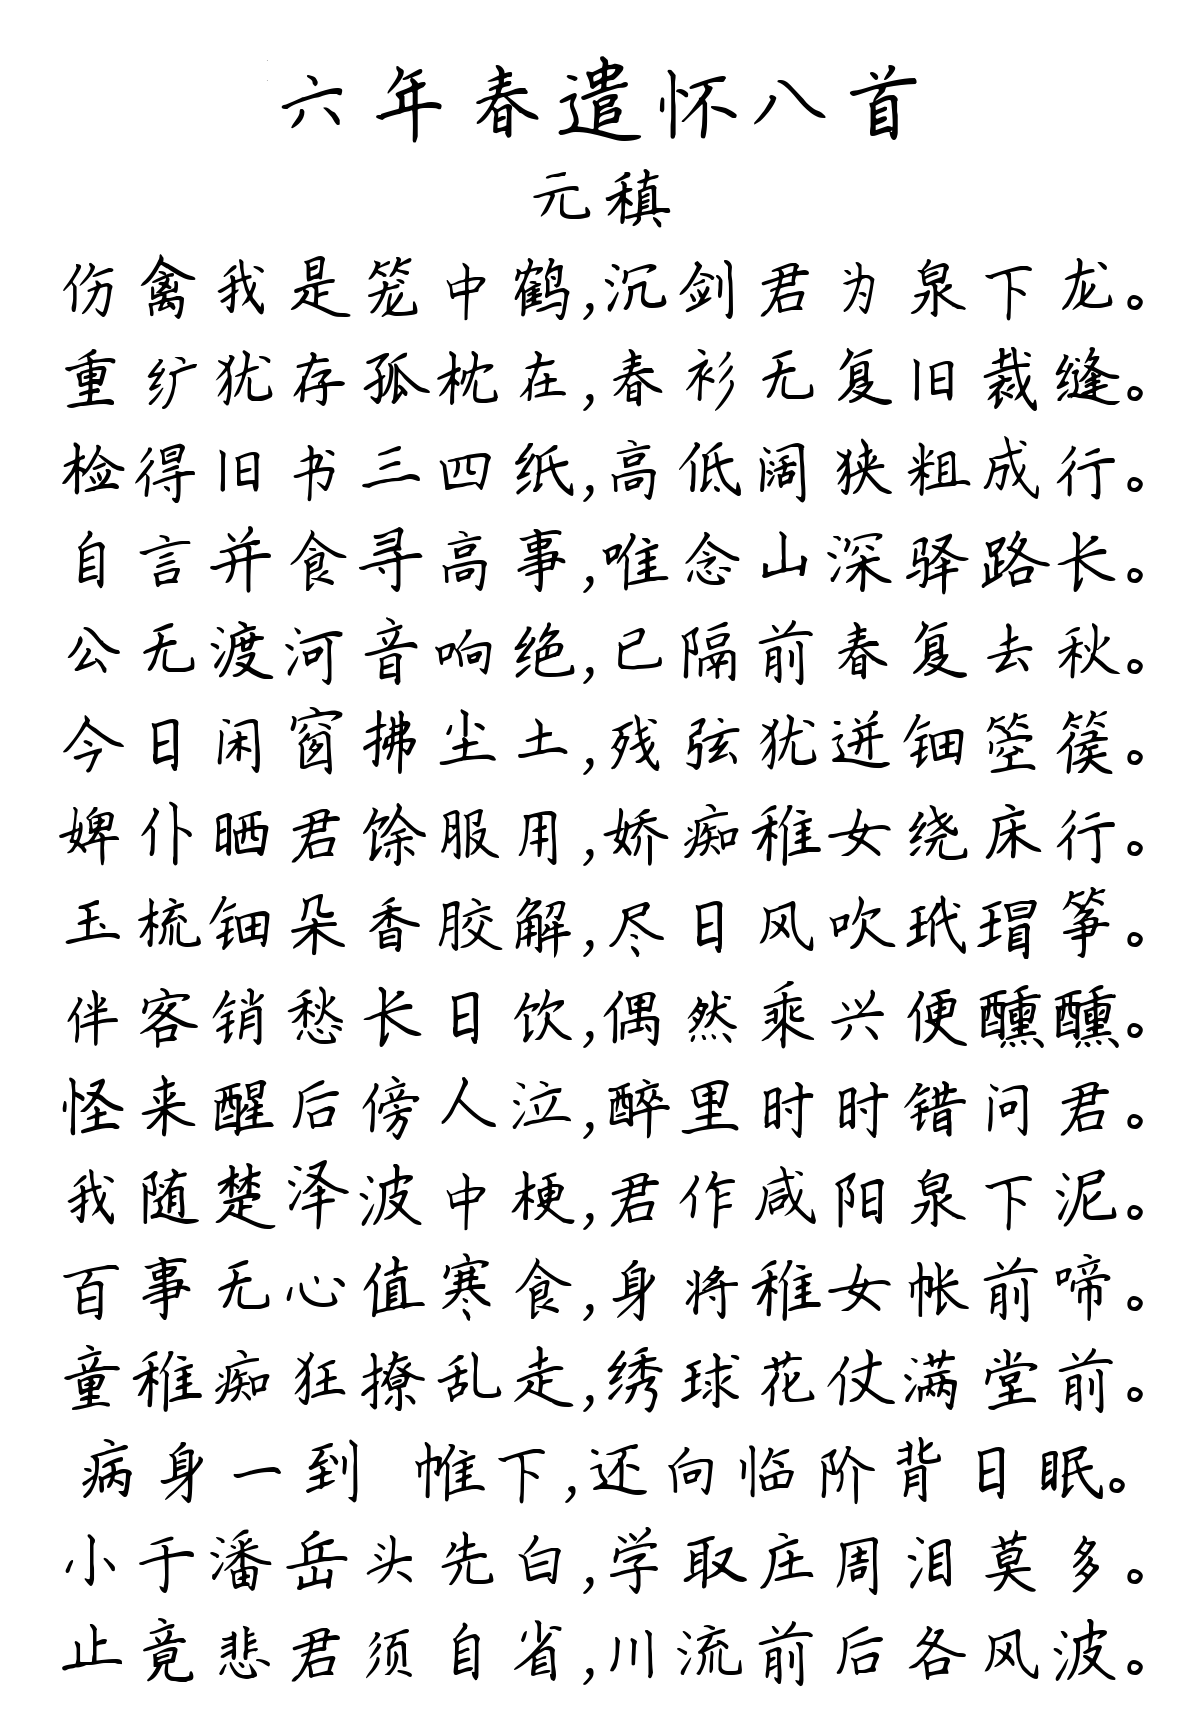 六年春遣怀八首
元稹
伤禽我是笼中鹤,沉剑君为泉下龙。
重纩犹存孤枕在,春衫无复旧裁缝。
检得旧书三四纸,高低阔狭粗成行。
自言并食寻高事,唯念山深驿路长。
公无渡河音响绝,已隔前春复去秋。
今日闲窗拂尘土,残弦犹迸钿箜篌。
婢仆晒君馀服用,娇痴稚女绕床行。
玉梳钿朵香胶解,尽日风吹玳瑁筝。
伴客销愁长日饮,偶然乘兴便醺醺。
怪来醒后傍人泣,醉里时时错问君。
我随楚泽波中梗,君作咸阳泉下泥。
百事无心值寒食,身将稚女帐前啼。
童稚痴狂撩乱走,绣球花仗满堂前。
病身一到 帷下,还向临阶背日眠。
小于潘岳头先白,学取庄周泪莫多。
止竟悲君须自省,川流前后各风波。